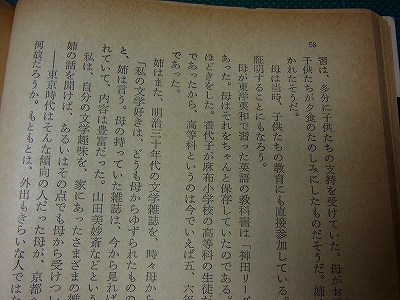 58
習は、多分に子供たちの支持を受けていた。母がお
子供たちが夕食のたのしみにしたものだそうだ。姉
かれたそうだ。
母は当時、子供たちの教育にも直接参加している
証明することにもなろう。
母が東洋英和で習った英語の教科書は「神田リー
あった。母はそれをちゃんと保存していたのである。
ほどきをした。香代子が麻布小学校の高等科の生徒だ
であったから、高等科というのは今でいえば五、六年
であった。
姉はまた、明治三十年代の文学雑誌を、時々母から
「私の文学好きは、どうも母からゆずられたものの
と、姉は言う。母の持っていた雑誌は、今から見れば
れていて、内容は豊富だった。山田美妙斎などという
私は、自分の文学趣味を、家にあったさまざまの雑
姉の話を聞けば、あるいはその点でも母から受けつい
――東京時代はそんな傾向の人だった母が、京都
何故だろうか。もともとは、外出もきらいな人ではな